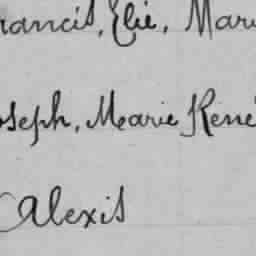 rancis, Elie, Mari
oseph, Marie René
Alexis